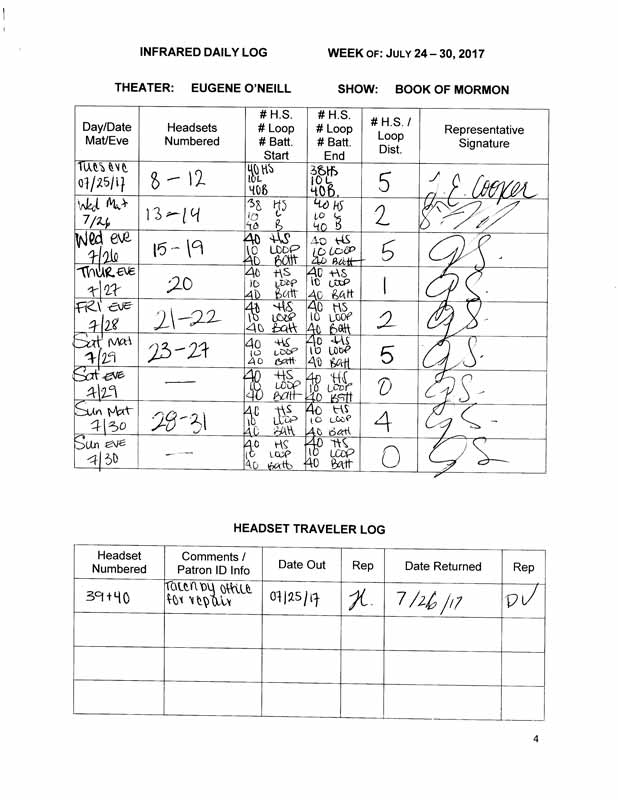 INFRARED DAILY LOG WEEK OF: JULY 24 – 30, 2017
THEATER: EUGENE O'NEILL SHOW: BOOK OF MORMON
Day/Date Mat/Eve Headsets Numbered # H.S. # Loop # Batt. Start # H.S. # Loop # Batt. End # H.S. / Loop Dist. Representative Signature
Tues eve 07/25/17 8 – 12 40 HS 10L 40B 38HS 10L 40B. 5 J. E. Cooper
Wed Mat 7/26 13 – 14 38 HS 10 L 40 B 40 HS 10 L 40 B 2
Wed eve 7/26 15 – 19 40 HS 10 LOOP 40 Batt 40 HS 10 LOOP 40 Batt 5 GS.
Thur EVE 7/27 20 40 HS 10 LOOP 40 Batt 40 HS 10 LOOP 40 Batt 1 GS.
FRI EVE 7/28 21-22 40 HS 10 LOOP 40 Batt 40 HS 10 LOOP 40 Batt 2 GS.
Sat Mat 7/29 23-27 40 HS 10 LOOP 40 Batt 40 HS 10 LOOP 40 Batt 5 GS.
Sat EVE 7/29 — 40 HS 10 LOOP 40 Batt 40 HS 10 LOOP 40 Batt 0 GS.
Sun Mat 7/30 28-31 40 HS 10 LOOP 40 Batt 40 HS 10 LOOP 40 Batt 4 GS.
Sun EVE 7/30 — 40 HS 10 LOOP 40 Batt 40 HS 10 LOOP 40 Batt 0 GS.
HEADSET TRAVELER LOG
Headset Numbered Comments / Patron ID Info Date Out Rep Date Returned Rep
39+40 Taken by office for repair 07/25/17 7/26/17 DV
4